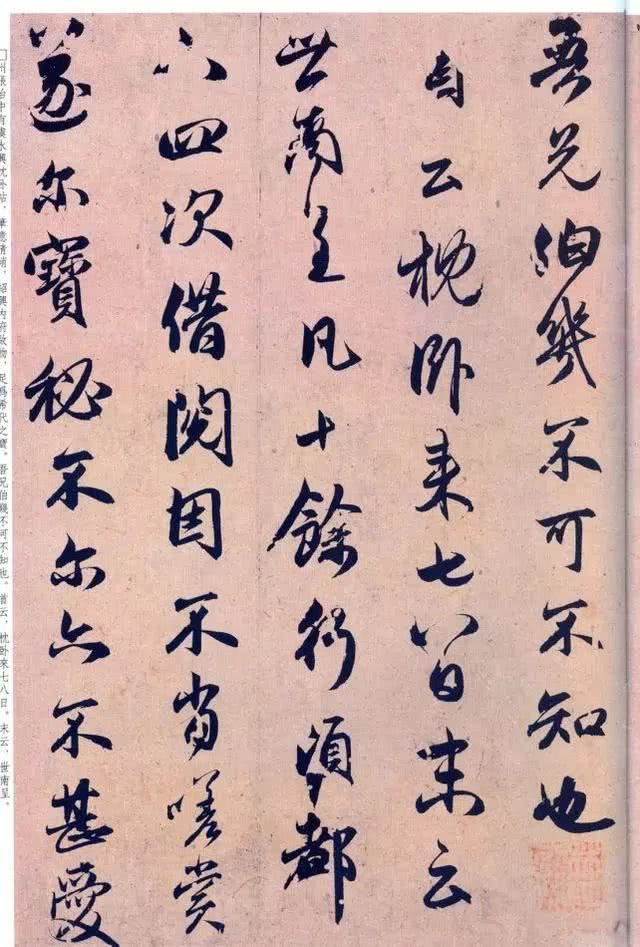 吾兄伯幾不可不知也
首云枕卧来七八日末云
世南呈凡十餘行頃都
下四次借閱因不當嗟賞
遂尔寶秘不尔亦不甚愛
□州張治中有虞永興枕卧帖，筆意清峭，紹興内府故物，足爲希代之寶。吾兄伯幾不可不知也。首云，枕卧來七八日。末云，世南呈。